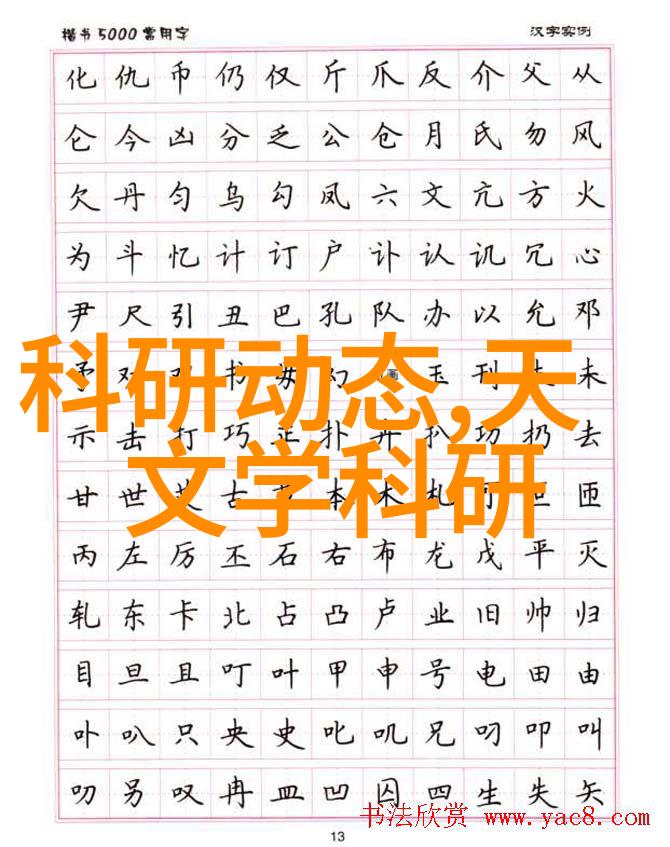 楷书5000常用字 汉字实例
化仇币仍仅斤爪反介父从
仑今凶分乏公仓月氏勿风
欠丹匀乌勾凤六文亢方火
为斗忆计订户讣认讥冗心
尹尺引丑巴孔队办以允邓
玉刊未
科研动态,天
示击打巧正扑卉扒功扔去
文学科研
甘世古本术札匝
丙左厉丕石右布龙戊平灭
轧东卡北占凸卢业旧帅归
目旦且叮叶甲申号电田由
卟叭只央史叱叽兄叼叩叫
叨另叹冉皿凹囚四生失矢
书法欣赏 www.yac8.com
13